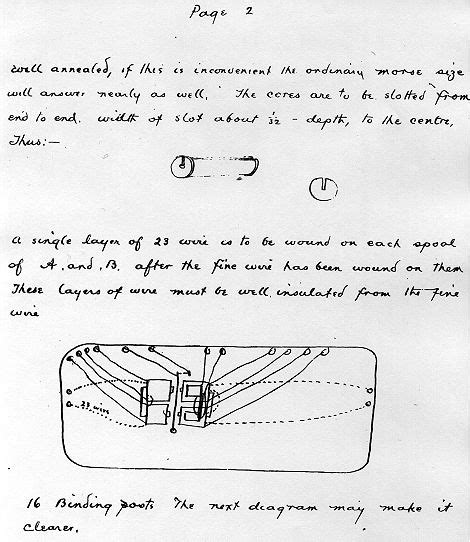 Page 2
well annealed, if this is inconvenient the ordinary morse size
will answer nearly as well. The cores are to be slotted from
end to end. width of slot about 1/32 - depth, to the centre,
Thus:-
A single layer of 23 wire is to be wound on each spool
of A. and. B. after the fine wire has been wound on them
These layers of wire must be well insulated from the fine
wire
23 wire
16 Binding posts The next diagram may make it
clearer.